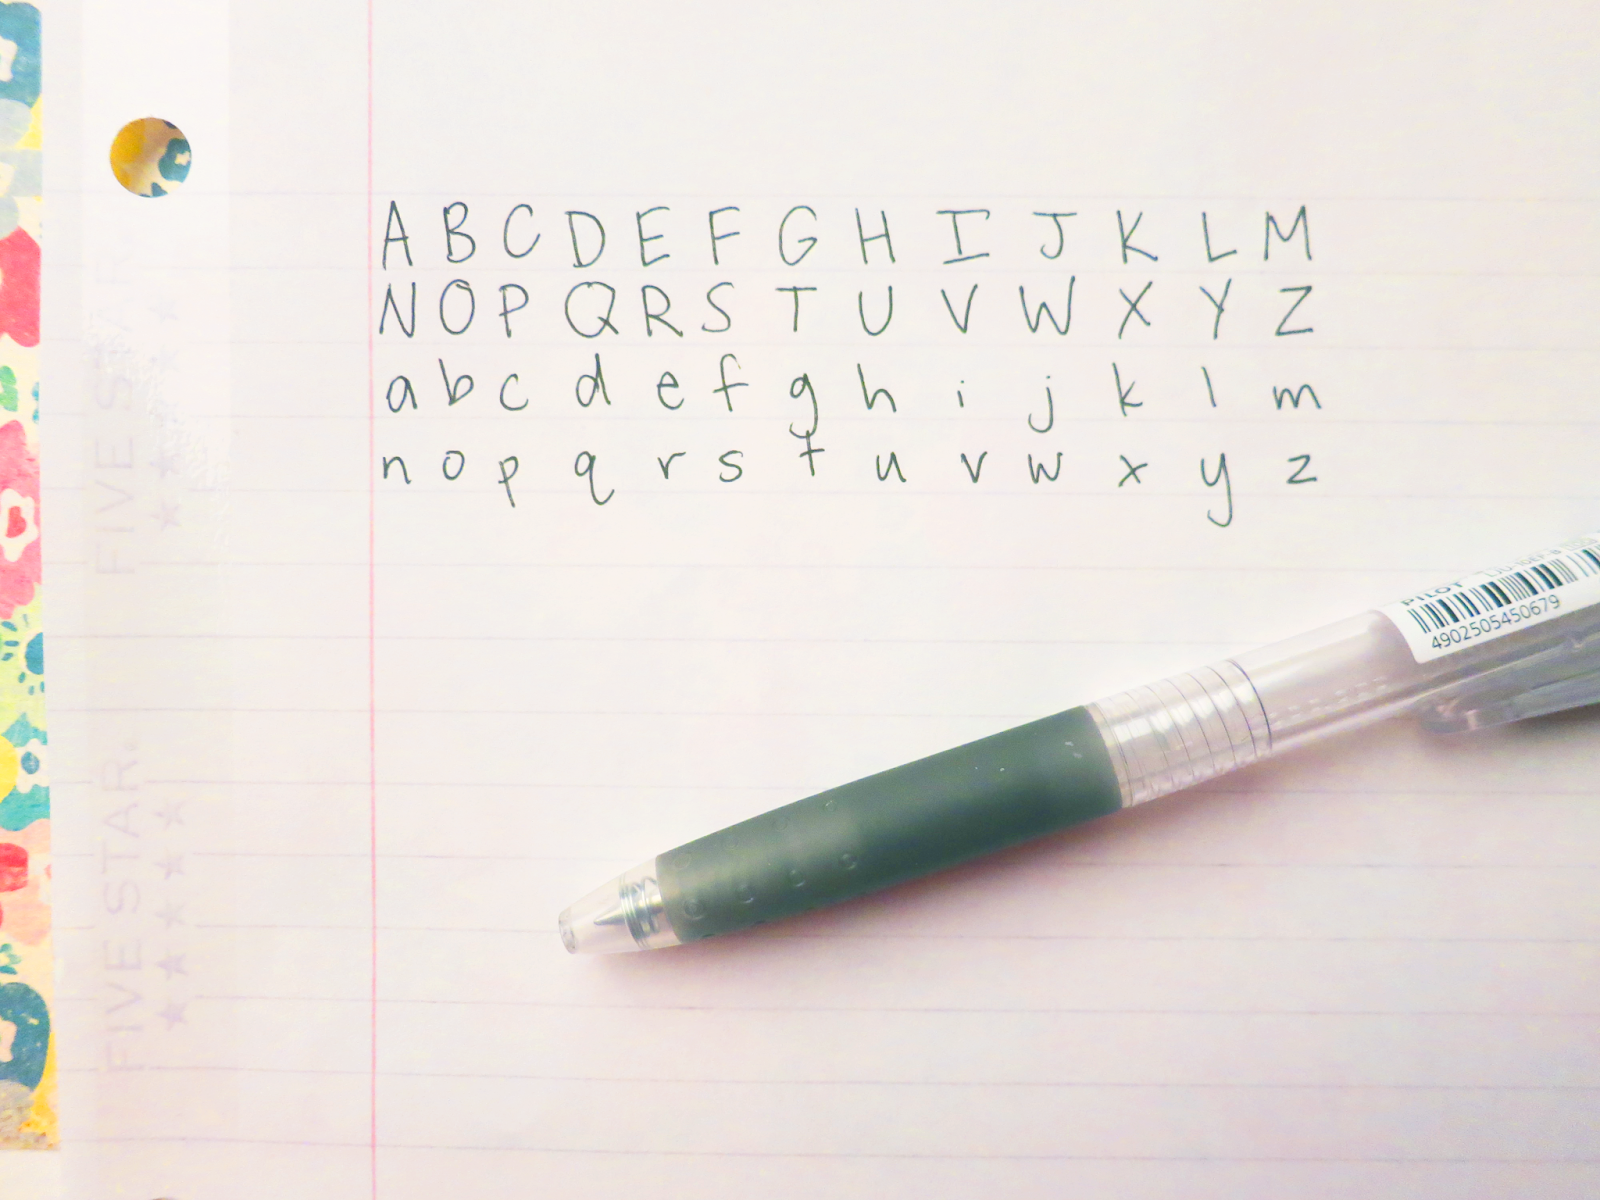 A B C D E F G H I J K L M
N O P Q R S T U V W X Y Z
a b c d e f g h i j k l m
n o p q r s t u v w x y z
PILOT
4902505450679
FIVE STAR
FIVE STAR.